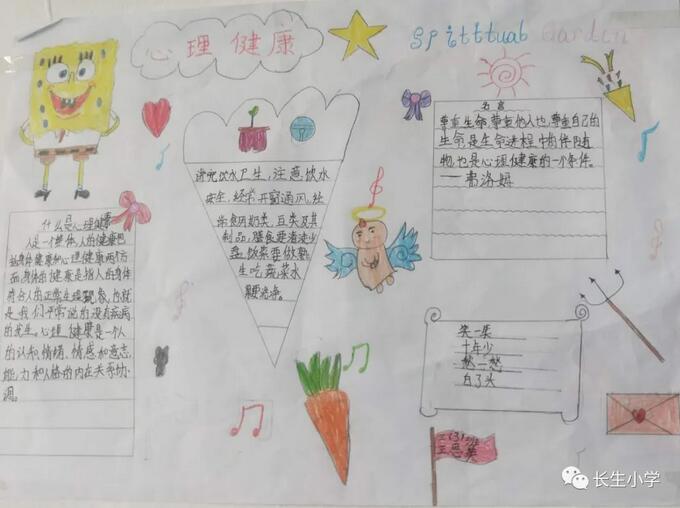 心理健康
Spitttual Garden
名言
尊重生命、尊重他人也尊重自己的
生命是生命进程中的伴随
物,也是心理健康的一个条件。
——弗洛姆
讲究饮水卫生,注意饮水
安全,经常开窗通风,经
常食用奶类、豆类及其
制品,膳食要清淡少
盐,饭菜要做熟,
生吃蔬菜水
果要洗净。
什么是心理健康
人是一个整体,人的健康包
括身体健康和心理健康两个方
面,身体的健康是指人的身体
符合人的正常生理现象,也就
是我们平常说的没有疾病
的发生。心理健康是一个人
的认知、情绪、情感和意志、
能力和人格的内在关系协
调。
笑一笑
十年少
愁一愁
白了头
三(3)班
王思
长生小学